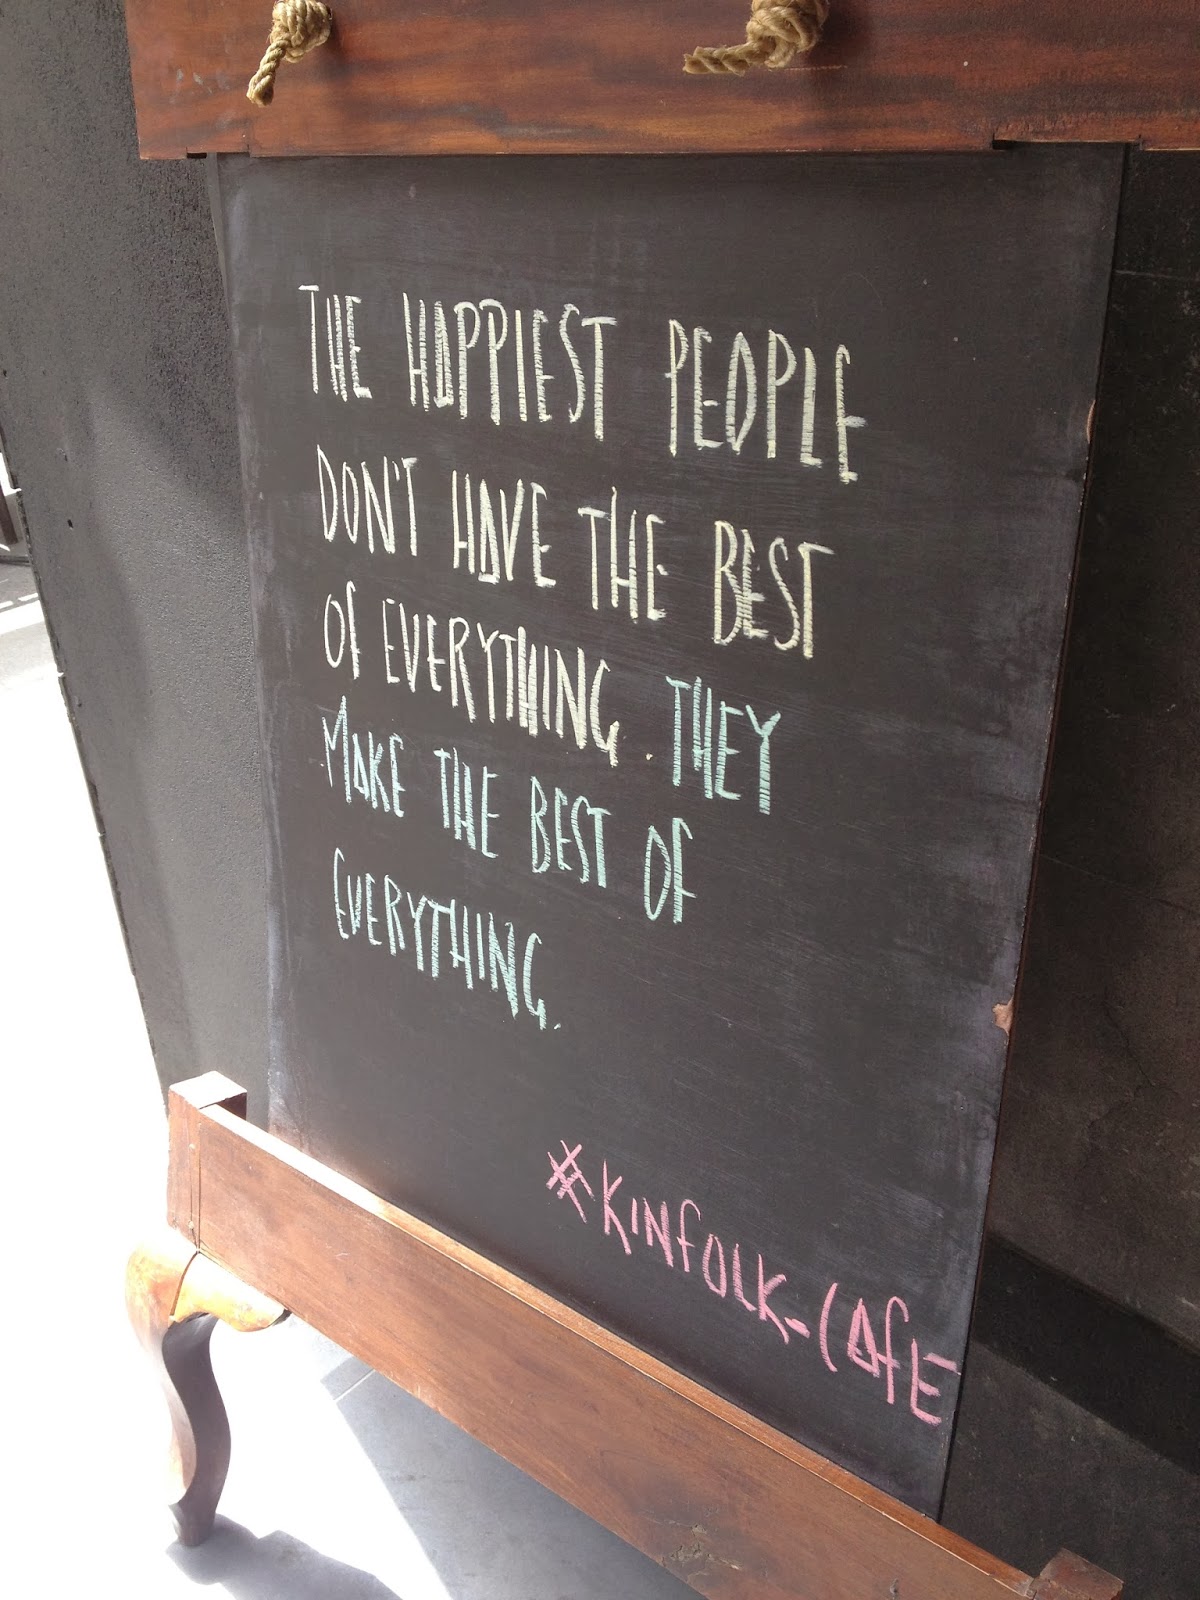 THE HAPPIEST PEOPLE
DON'T HAVE THE BEST
OF EVERYTHING. THEY
MAKE THE BEST OF
EVERYTHING.
#KINFOLK-CAFE